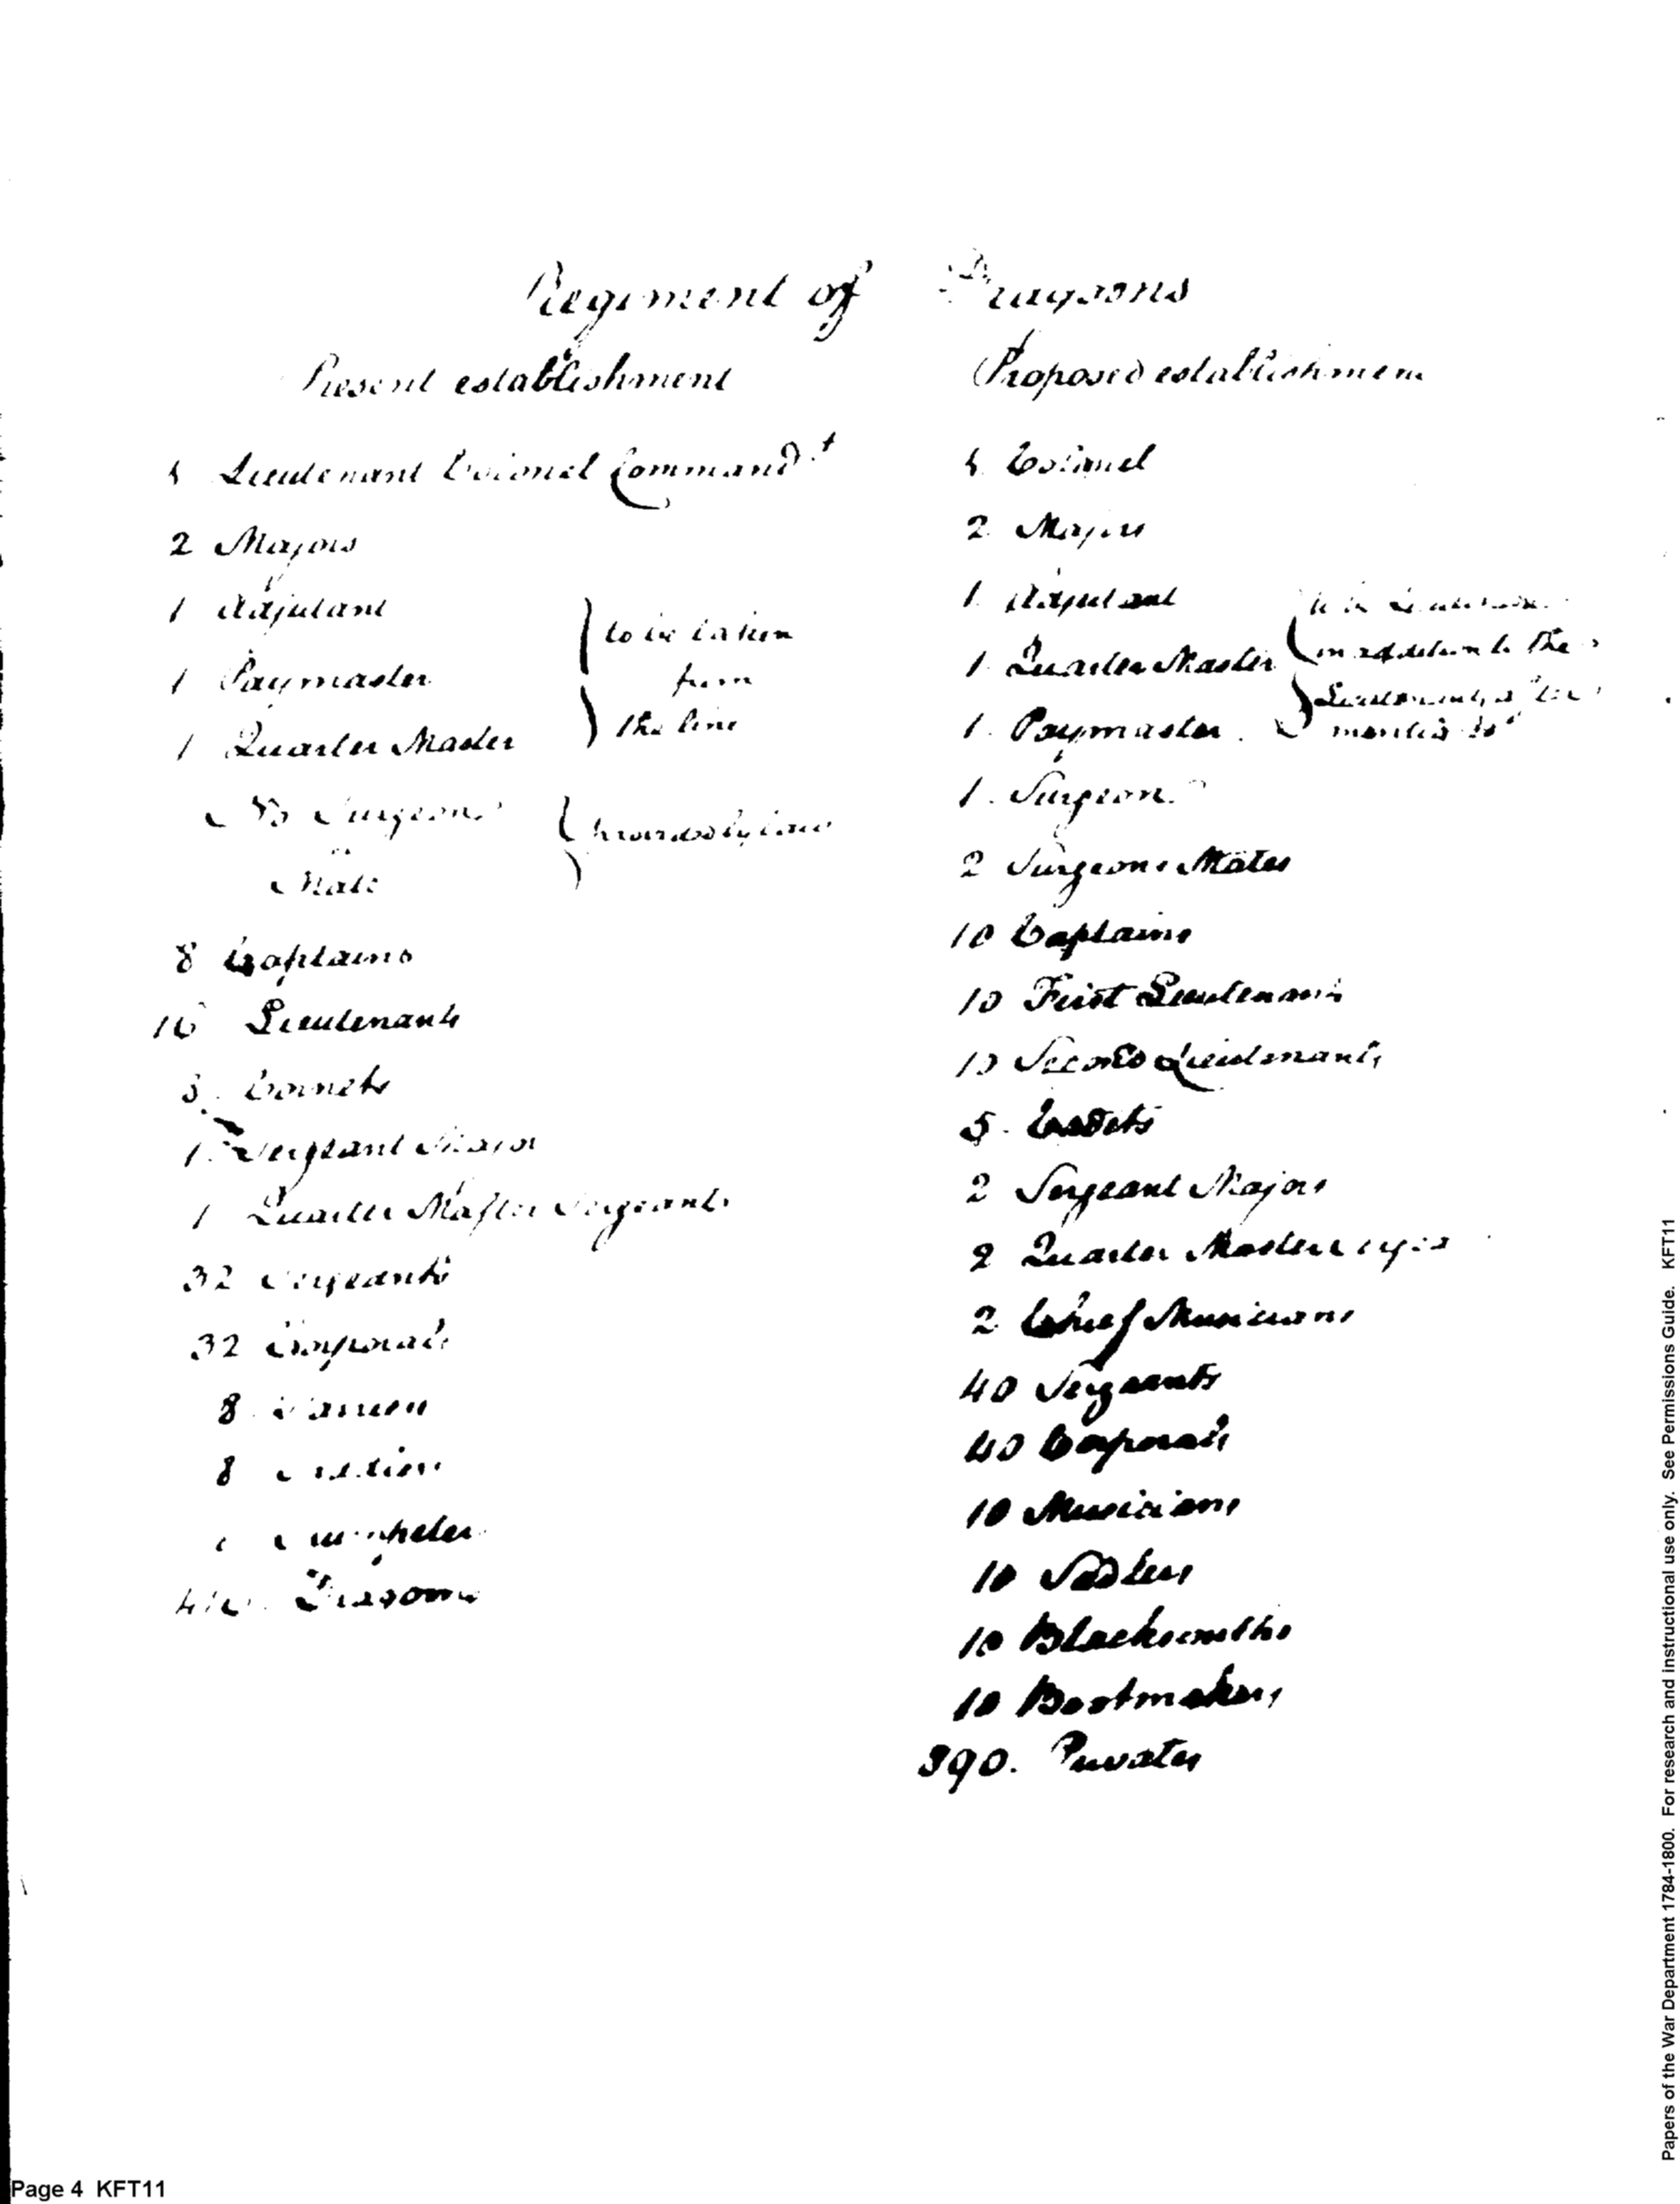 Regiment of Dragoons
Present establishment
1 Lieutenant Colonel Command.t
2 Majors
1 Adjutant
1 Paymaster
1 Quarter Master
to be taken
from
the line
No Surgeon
Mate
provided by law
8 Captains
16 Lieutenants
8 Cornets
1 Sergeant Major
1 Quarter Master Sergeants
32 Sergeants
32 Corporals
8 Farriers
8
Trumpeter
Dragoons
Proposed establishment
1. Colonel
2. Majors
1. Adjutant
1. Quarter Master
1. Paymaster.
to be Lieutenants
in addition to the
Lieutenants after
mentioned
1. Surgeon.
2 Surgeons Mates
10 Captains
10 First Lieutenants
10 Second Lieutenants
5. Cadets
2 Sergeant Majors
2 Quarter Master
2 Chief Musicians
40 Sergeants
40 Corporals
10 Musicians
10 Sadlers
10 Blacksmiths
10 Bootmakers
890. Privates
Papers of the War Department 1784-1800. For research and instructional use only. See Permissions Guide. KFT11
Page 4 KFT11